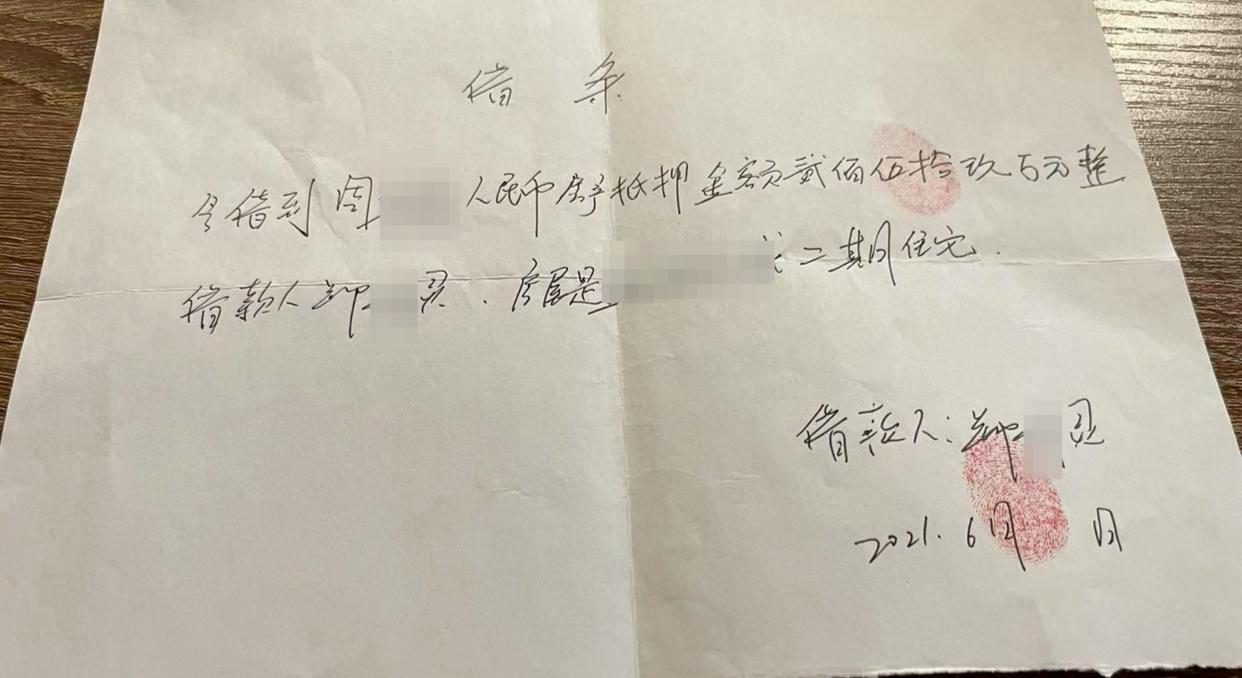 借条
今借到周 人民币房子抵押金额贰佰伍拾玖万元整
借款人郑 灵、房屋是 二期住宅.
借款人:郑 灵
2021.6月 日